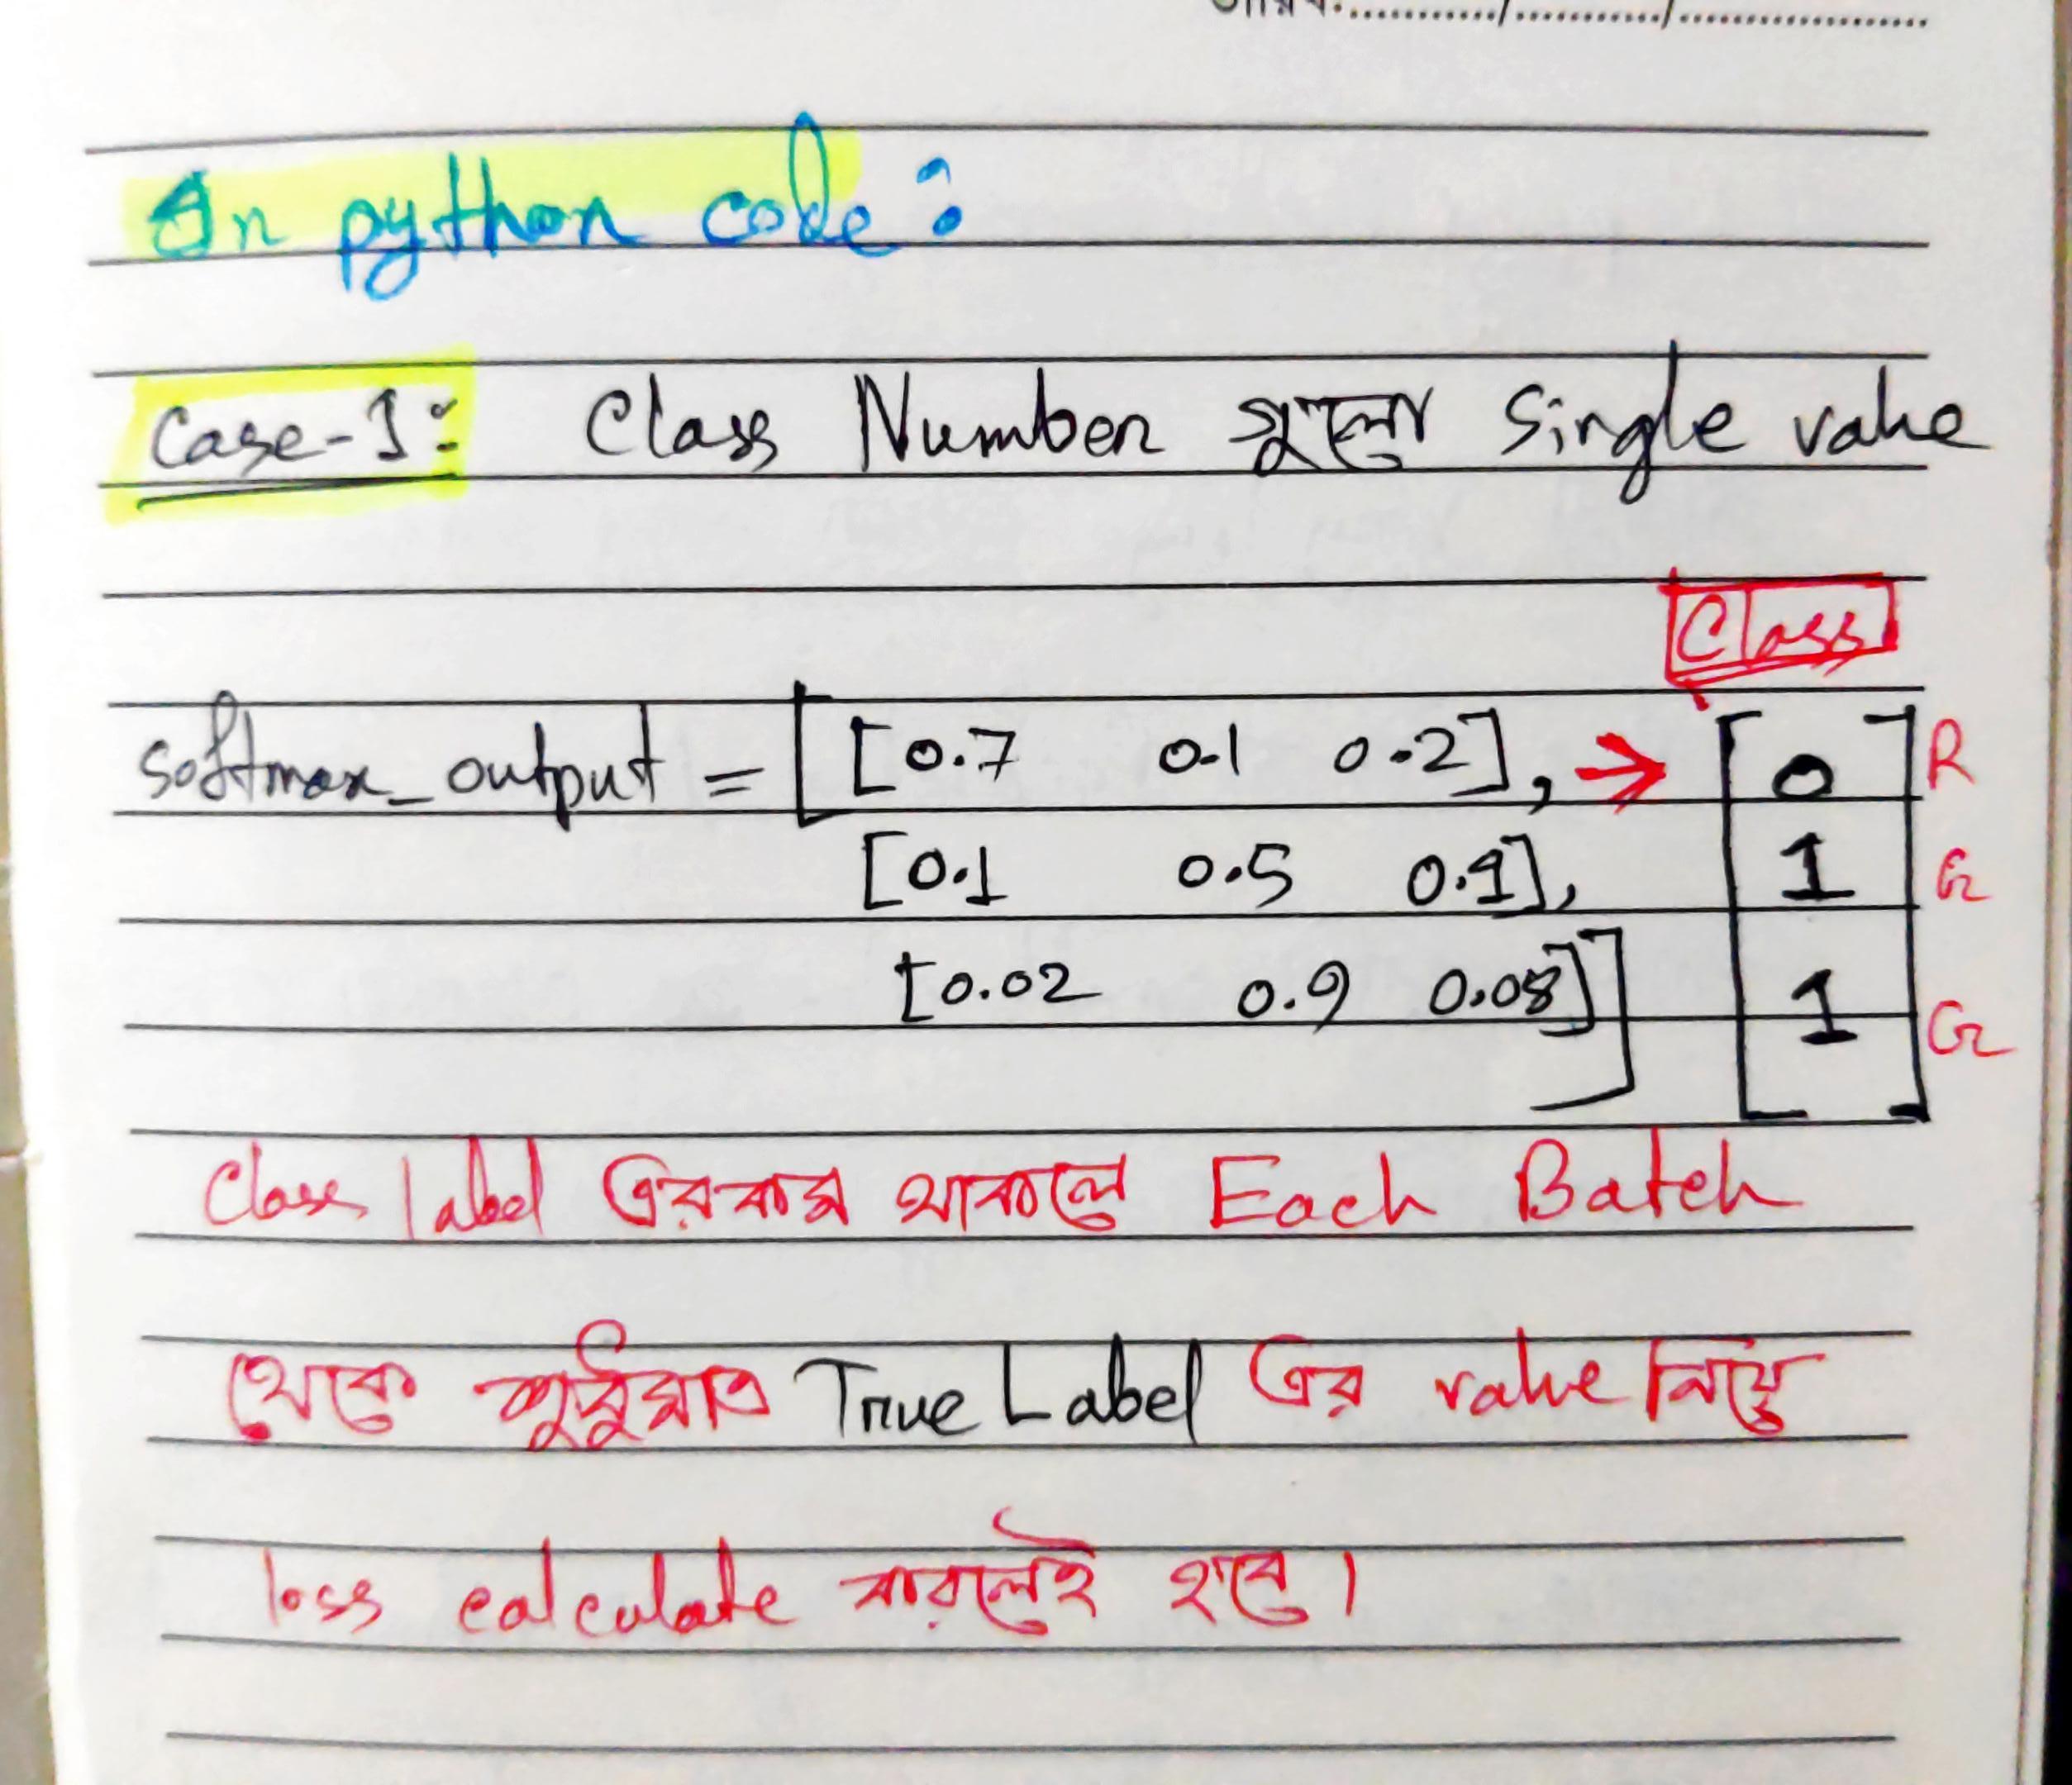 In python code:
Case-1: Class Number গুলো Single value
Class
softmax_output = [[0.7 0.1 0.2], → [0 R
[0.1 0.5 0.1], 1 G
[0.02 0.9 0.08]] 1] G
Class label এরকম থাকলে Each Batch
থেকে শুধুমাত্র True Label এর value নিয়ে
loss calculate করলেই হবে।